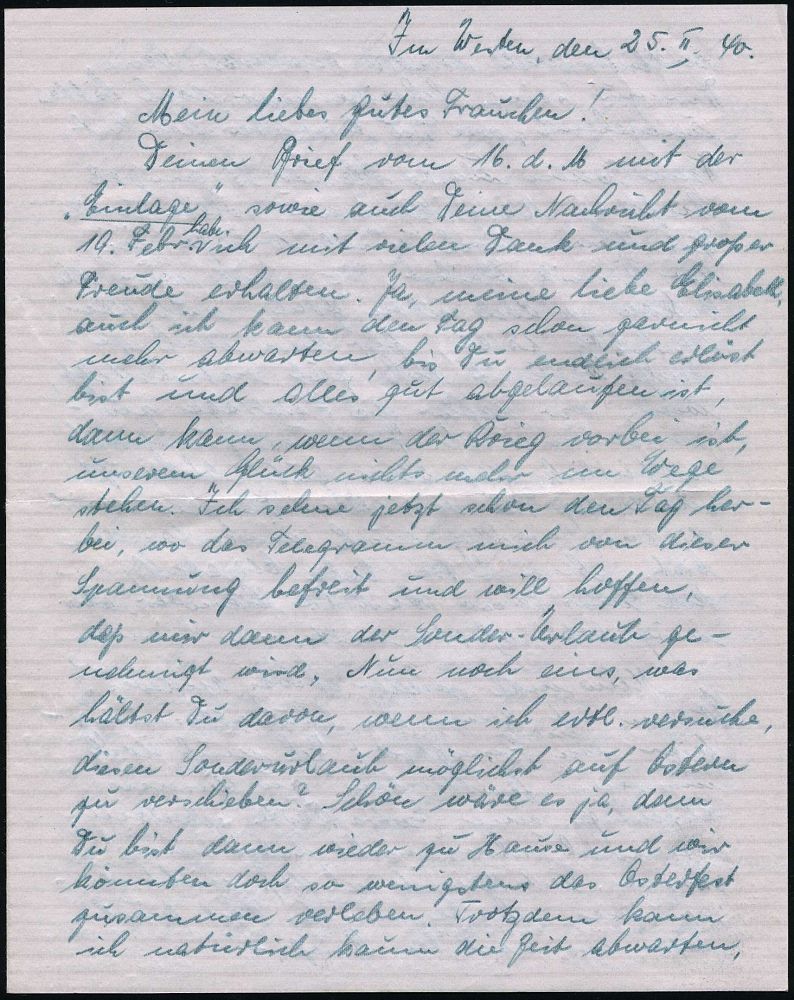 Im Westen, den 25. II. 40.
Mein liebes gutes Frauchen!
Deinen Brief vom 16. d. M mit der
„Einlage“ sowie auch Deine Nachricht vom
19. Febr. habe ich mit vielen Dank und großer
Freude erhalten. Ja, meine liebe Elisabeth,
auch ich kann den Tag schon garnicht
mehr abwarten, bis Du endlich erlöst
bist und alles gut abgelaufen ist,
dann kann, wenn der Krieg vorbei ist,
unserem Glück nichts mehr im Wege
stehen. Ich sehne jetzt schon den Tag her-
bei, wo das Telegramm mich von dieser
Spannung befreit und will hoffen,
daß mir dann der Sonder-Urlaub ge-
nehmigt wird. Nun noch eins, was
hältst Du davon, wenn ich evtl. versuche,
diesen Sonderurlaub möglichst auf Ostern
zu verschieben? Schön wäre es ja, denn
Du bist dann wieder zu Hause und wir
könnten doch so wenigstens das Osterfest
zusammen verleben. Trotzdem kann
ich natürlich kaum die Zeit abwarten,